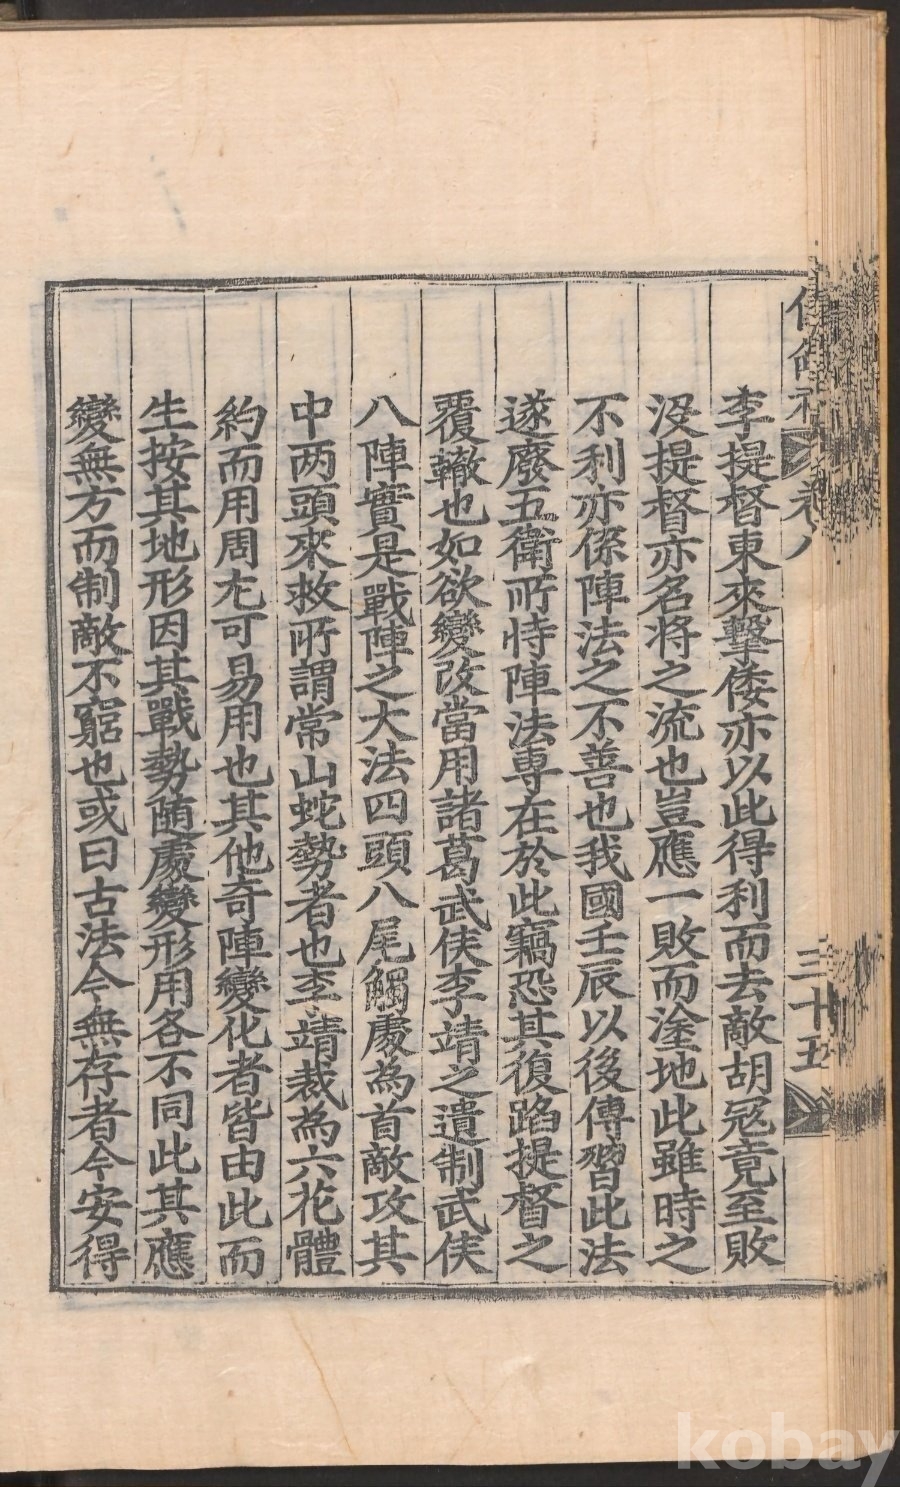 李提督東來擊倭亦以此得利而去敵胡冦竟至敗
沒提督亦名将之流也豈應一敗而塗地此雖時之
不利亦係陣法之不善也我國壬辰以後傳習此法
遂廢五衛所恃陣法專在於此竊恐其復蹈提督之
覆轍也如欲變改當用諸葛武侯李靖之遺制武侯
八陣實是戰陣之大法四頭八尾觸處為首敵攻其
中两頭來救所謂常山蛇勢者也李靖裁為六花體
約而用周尤可易用也其他奇陣變化者皆由此而
生按其地形因其戰勢随處變形用各不同此其應
變無方而制敵不窮也或曰古法今無存者今安得
卷八
三十五
kobay